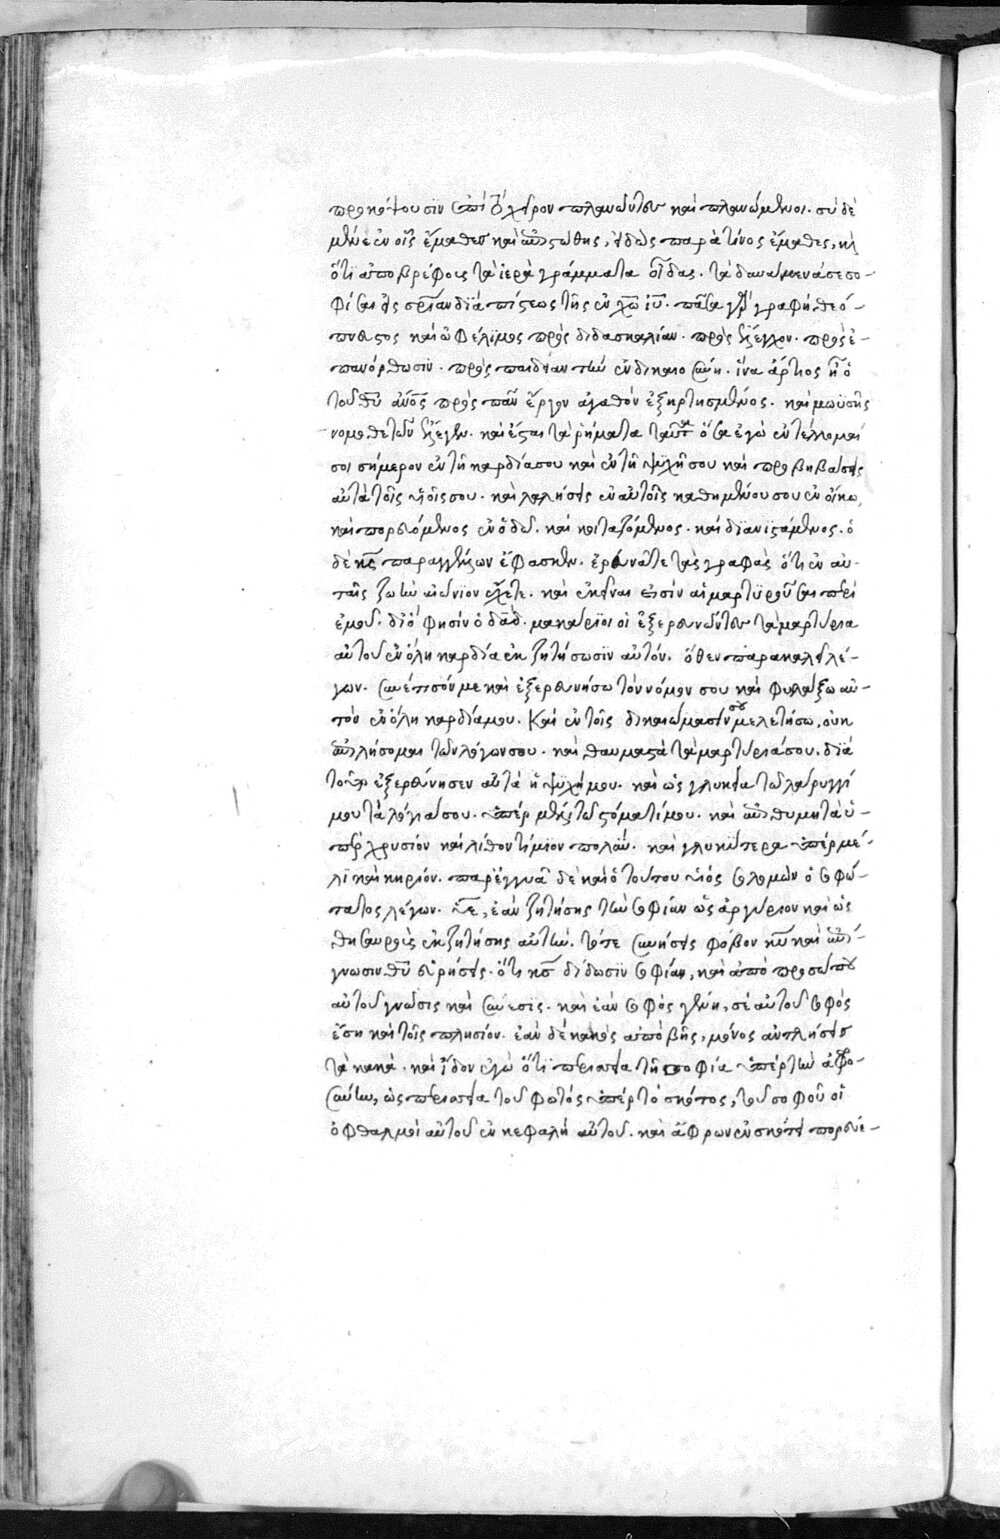 προκόψουσιν ἐπὶ τὸ χεῖρον πλανῶντες καὶ πλανώμενοι. σὺ δὲ
μένε ἐν οἷς ἔμαθες καὶ ἐπιστώθης, εἰδὼς παρὰ τίνος ἔμαθες, καὶ
ὅτι ἀπὸ βρέφους τὰ ἱερὰ γράμματα οἶδας. τὰ δυνάμενά σε σο-
φίσαι εἰς σωτηρίαν διὰ πίστεως τῆς ἐν χω ιυ. πᾶσα γὰρ γραφὴ θεό-
πνευστος καὶ ὠφέλιμος πρὸς διδασκαλίαν. πρὸς ἔλεγχον. πρὸς ἐ-
πανόρθωσιν. πρὸς παιδείαν τὴν ἐν δικαιοσύνη. ἵνα ἄρτιος ἦ ὁ
τοῦ θυ ανος πρὸς πᾶν ἔργον ἀγαθὸν ἐξηρτησμένος. καὶ μωϋσῆς
νομοθετῶν ἔλεγεν. καὶ ἔσται τὰ ῥήματα ταῦτα ὅσα ἐγὼ ἐντέλλομαί
σοι σήμερον ἐν τῆ καρδία σου καὶ ἐν τῆ ψυχῆ σου καὶ προβηβάσεις
αὐτὰ τοῖς υἱοῖς σου. καὶ λαλήσεις ἐν αὐτοῖς καθημένου σου ἐν οἴκω,
καὶ πορευόμενος ἐν ὁδῶ. καὶ κοιταζόμενος. καὶ διανιστάμενος. ὁ
δὲ κς παραγγέλλων ἔφασκεν. ἐρευνᾶτε τὰς γραφὰς ὅτι ἐν αὐ-
ταῖς ζωὴν αἰώνιον ἔχετε. καὶ ἐκεῖναι εἰσὶν αἱ μαρτυροῦσαι περὶ
ἐμοῦ. διό φησιν ὁ δαδ. μακάριοι οἱ ἐξερευνῶντες τὰ μαρτύρια
αὐτοῦ ἐν ὅλη καρδία ἐκζητήσωσιν αὐτόν. ὅθεν παρακαλεῖ λέ-
γων. συνέτισόν με καὶ ἐξερευνήσω τὸν νόμον σου καὶ φυλάξω αὐ-
τὸν ἐν ὅλη καρδία μου. Καὶ ἐν τοῖς δικαιώμασίν σου μελετήσω, οὐκ
ἐπιλήσομαι τῶν λόγων σου. καὶ θαυμαστὰ τὰ μαρτύριά σου. διὰ
τοῦτο ἐξερεύνησεν αὐτὰ ἡ ψυχή μου. καὶ ὡς γλυκέα τῶ λάρυγγί
μου τὰ λόγιά σου. ὑπὲρ μέλι τῶ στόματί μου. καὶ ἐπιθυμητὰ ὑ-
πὲρ χρυσίον καὶ λίθον τίμιον πολύν. καὶ γλυκύτερα ὑπὲρ μέ-
λι καὶ κηρίον. παρεγγυᾶ δὲ καὶ ὁ τούτου υἱὸς σολομὼν ὁ σοφώ-
τατος λέγων. υἱὲ, ἐὰν ζητήσης τὴν σοφίαν ὡς ἀργύριον καὶ ὡς
θησαυροὺς ἐκζητήσης αὐτήν. τότε συνήσεις φόβον κυ καὶ ἐπί-
γνωσιν θυ εὑρήσεις. ὅτι κς δίδωσιν σοφίαν, καὶ ἀπὸ προσώπου
αὐτοῦ γνῶσις καὶ σύνεσις. καὶ ἐὰν σοφὸς γένη, σεαυτοῦ σοφὸς
ἔση καὶ τοῖς πλησίον. ἐὰν δὲ κακὸς ἀποβῆς, μόνος ἀντλήσεις
τὰ κακά. καὶ ἴδον ἐγὼ ὅτι περισσεία τῆ σοφία ὑπὲρ τὴν ἀφρο-
σύνην, ὡς περισσεία τοῦ φωτὸς ὑπὲρ τὸ σκότος, τοῦ σοφοῦ οἱ
ὀφθαλμοὶ αὐτοῦ ἐν κεφαλῆ αὐτοῦ. καὶ ἄφρων ἐν σκότει πορεύε-